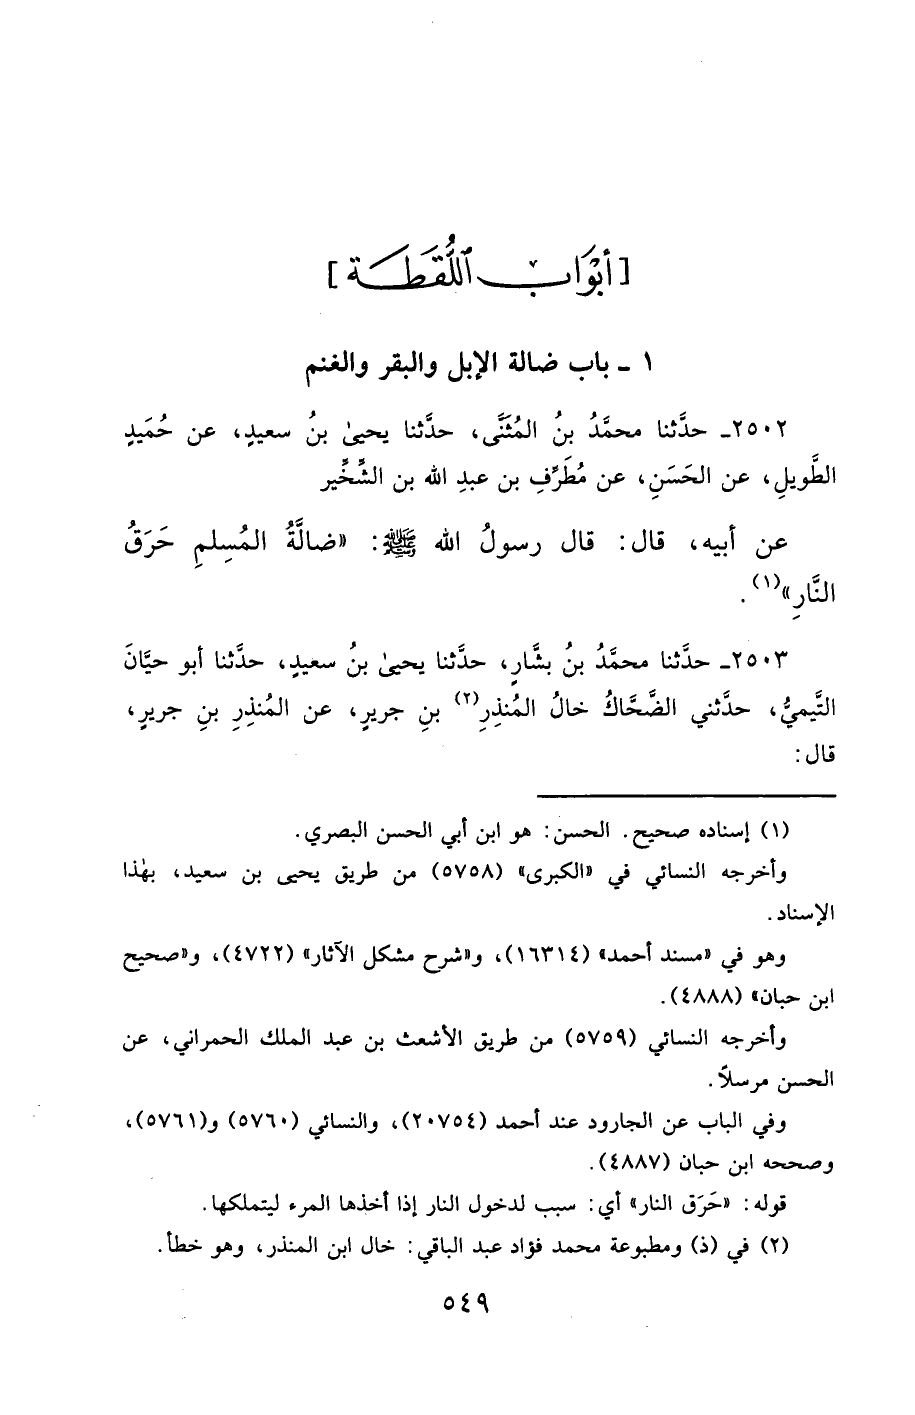 [أَبْوَابُ اللُّقَطَة]
١ - باب ضالة الإبل والبقر والغنم
٢٥٠٢- حدَّثنا محمَّدُ بنُ المُثنَّى، حدَّثنا يحيىٰ بنُ سعيدٍ، عن حُمَيدٍ
الطَّويلِ، عن الحَسَنِ، عن مُطَرِّفِ بن عبدِ الله بن الشِّخِّير
عن أبيه، قال: قال رسولُ الله ﷺ: «ضالَّةُ المُسلمِ حَرَقُ
النَّارِ»(١).
٢٥٠٣- حدَّثنا محمَّدُ بنُ بشَّارٍ، حدَّثنا يحيىٰ بنُ سعيدٍ، حدَّثنا أبو حيَّانَ
التَّيميُّ، حدَّثني الضَّحَّاكُ خالُ المُنذِرِ(٢) بنِ جريرٍ، عن المُنذِرِ بنِ جريرٍ،
قال:
(١) إسناده صحيح. الحسن: هو ابن أبي الحسن البصري.
وأخرجه النسائي في «الكبرى» (٥٧٥٨) من طريق يحيى بن سعيد، بهٰذا
الإسناد.
وهو في «مسند أحمد» (١٦٣١٤)، و«شرح مشكل الآثار» (٤٧٢٢)، و«صحيح
ابن حبان» (٤٨٨٨).
وأخرجه النسائي (٥٧٥٩) من طريق الأشعث بن عبد الملك الحمراني، عن
الحسن مرسلاً.
وفي الباب عن الجارود عند أحمد (٢٠٧٥٤)، والنسائي (٥٧٦٠) و(٥٧٦١)،
وصححه ابن حبان (٤٨٨٧).
قوله: «حَرَق النار» أي: سبب لدخول النار إذا أخذها المرء ليتملكها.
(٢) في (ذ) ومطبوعة محمد فؤاد عبد الباقي: خال ابن المنذر، وهو خطأ.
٥٤٩